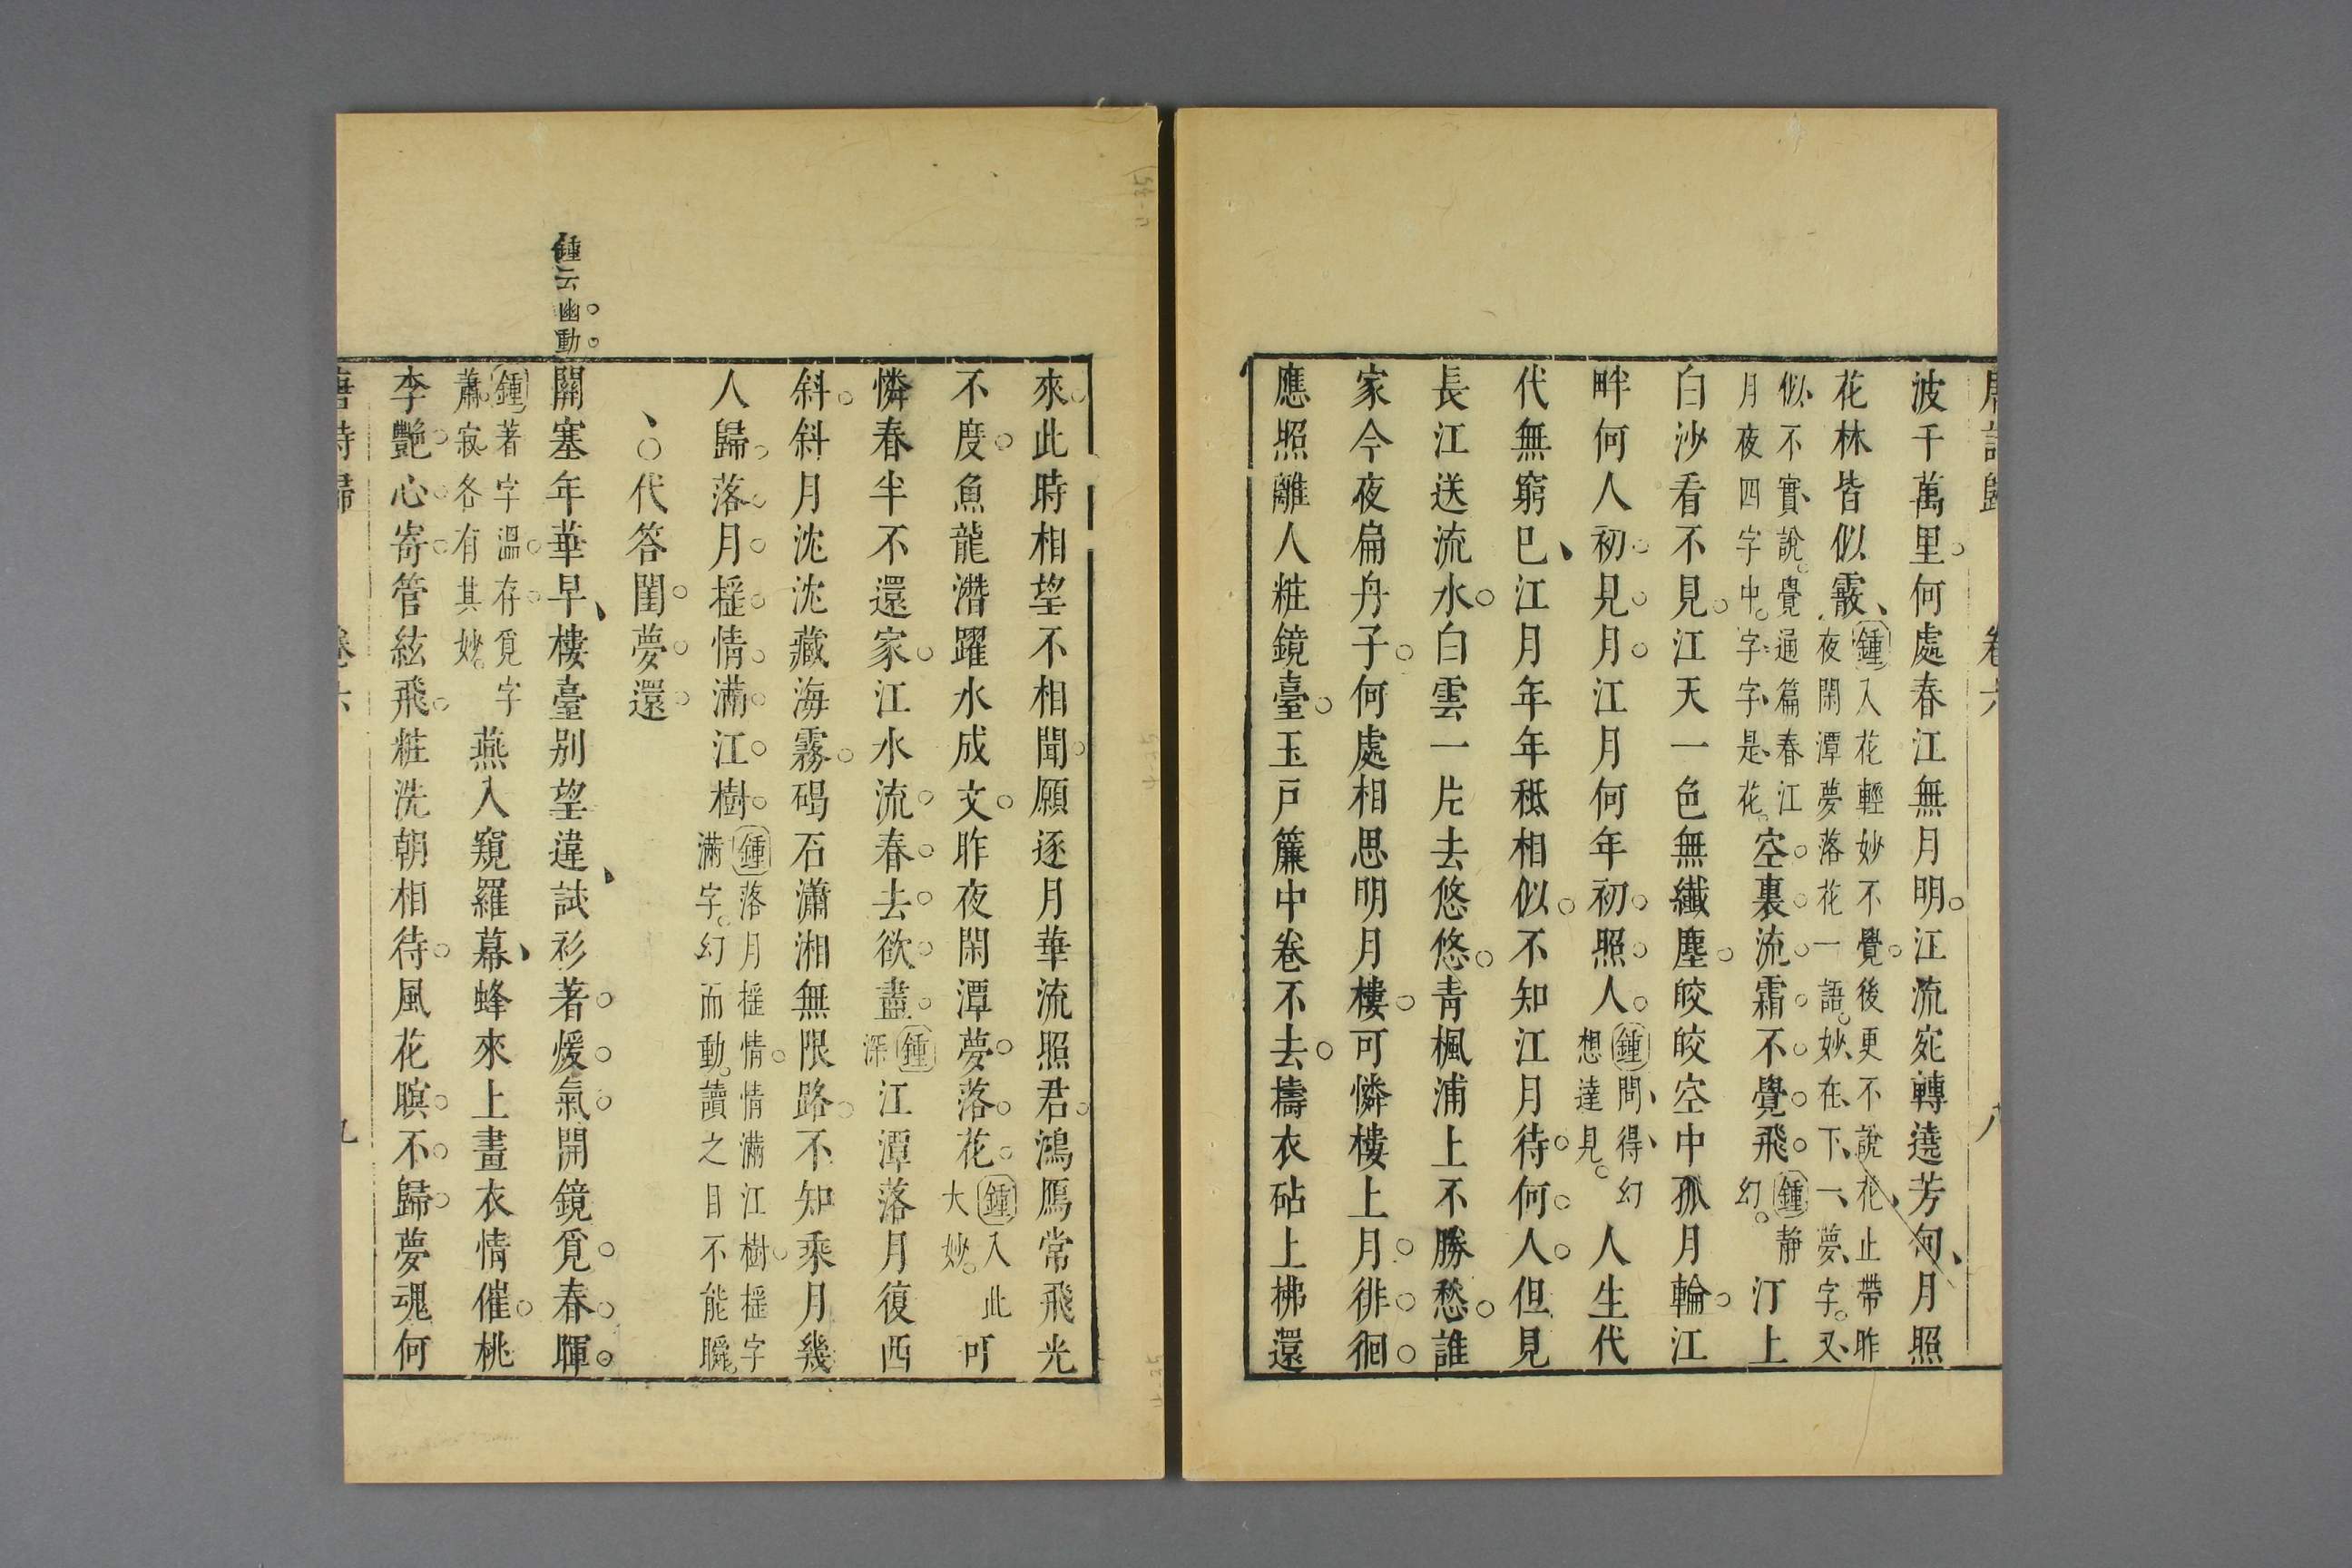 唐詩歸 卷六 八
波千萬里何處春江無月明江流宛轉遶芳甸月照
花林皆似霰
鍾入花輕妙不覺後更不說花止帶昨
夜閑潭夢落花一語妙在下一夢字又
似不實說覺通篇春江
月夜四字中字字是花
空裏流霜不覺飛
鍾静
幻
汀上
白沙看不見江天一色無纖塵皎皎空中孤月輪江
畔何人初見月江月何年初照人
鍾問得幻
想達見
人生代
代無窮巳江月年年秪相似不知江月待何人但見
長江送流水白雲一片去悠悠青楓浦上不勝愁誰
家今夜扁舟子何處相思明月樓可憐樓上月徘徊
應照離人粧鏡臺玉戸簾中卷不去擣衣砧上拂還
來此時相望不相聞願逐月華流照君鴻鴈常飛光
不度魚龍潛躍水成文昨夜閑潭夢落花
鍾入此
大妙
可
憐春半不還家江水流春去欲盡
鍾
深
江潭落月復西
斜斜月沈沈藏海霧碣石瀟湘無限路不知乘月幾
人歸落月搖情滿江樹
鍾落月搖情情滿江樹搖字
滿字幻而動讀之目不能瞬
○代答閨夢還
鍾云幽動
關塞年華早樓臺别望違試衫著煖氣開鏡覓春暉
鍾著字溫存覓字
蕭寂各有其妙
燕入窺羅幕蜂來上畫衣情催桃
李艷心寄管絃飛粧洗朝相待風花暝不歸夢魂何
唐詩歸 卷六 九